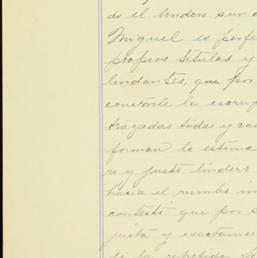 de el lindero sur
Miguel es perfe
propios titulos y
lindantes; que por
constarle la escrup
trazadas todas y ca
forman la estima
ro y justo lindero
hacia el rumbo in
contestó que por s
justa y exactamen
de la repetida